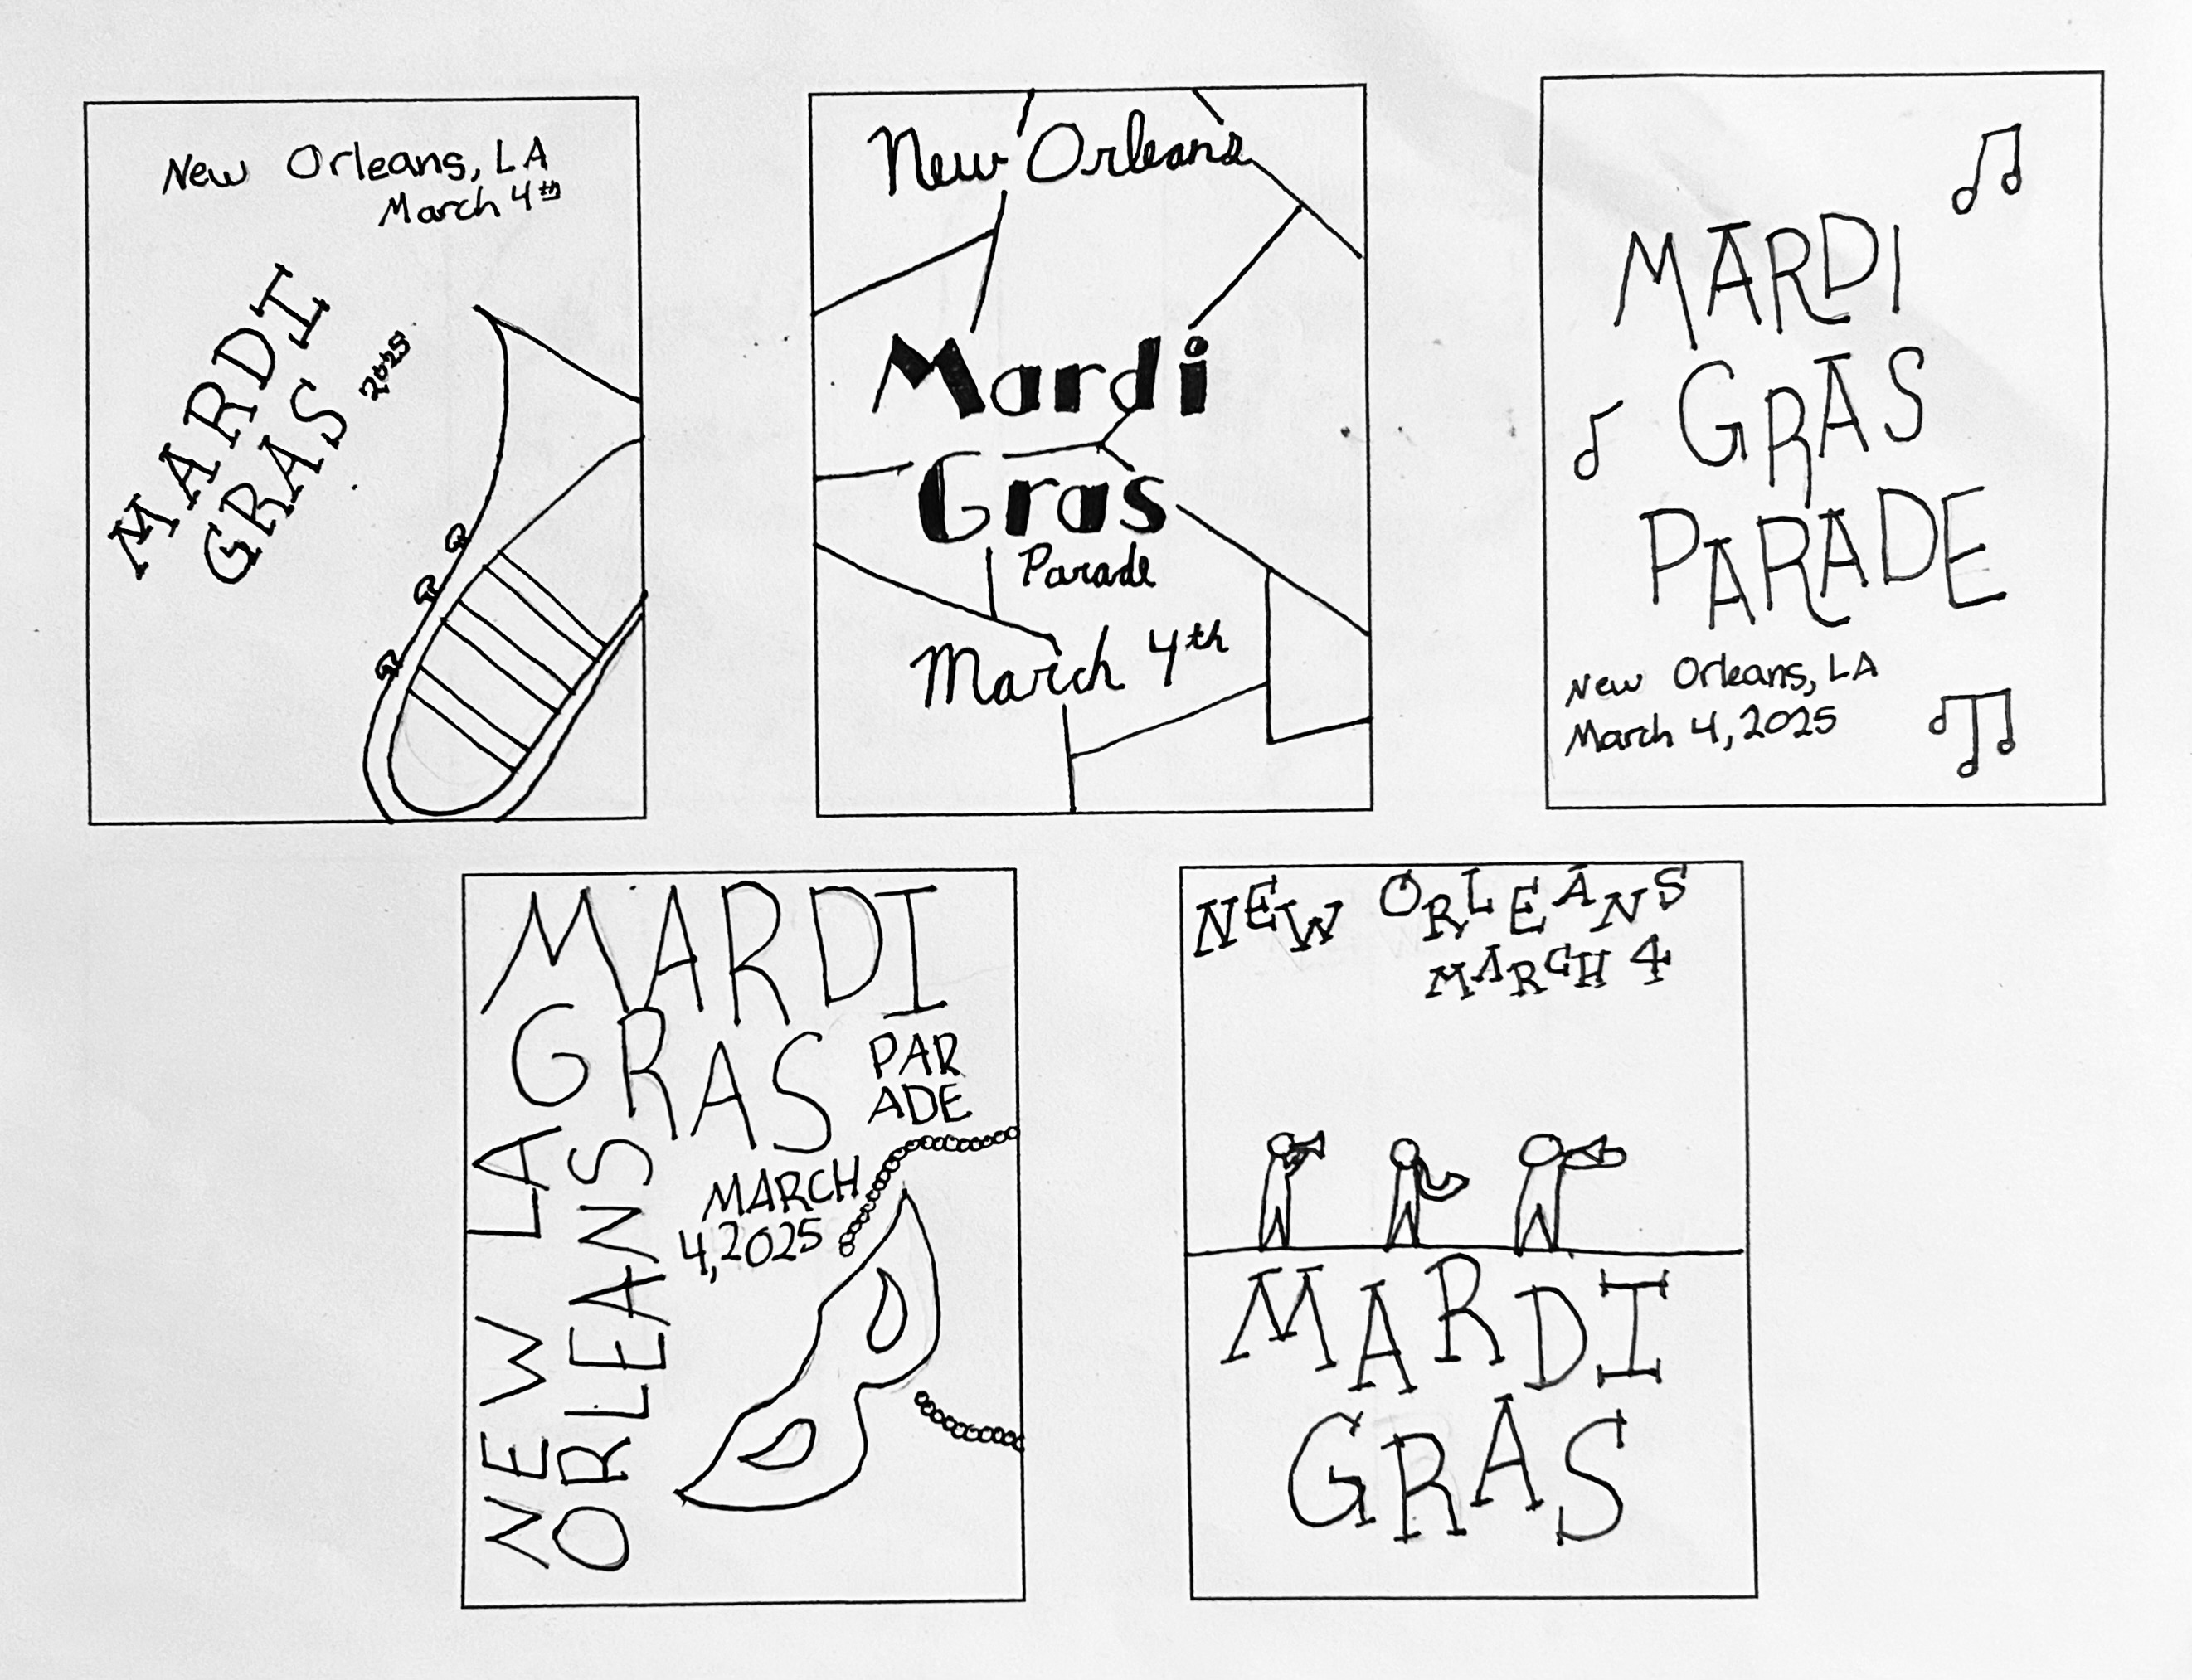 New Orleans, LA
March 4th
MARDI
GRAS 2025
New Orleans
Mardi
Gras
Parade
March 4th
MARDI
GRAS
PARADE
New Orleans, LA
March 4, 2025
MARDI
GRAS
PAR
ADE
NEW LA
ORLEANS
MARCH
4, 2025
NEW ORLEANS
MARCH 4
MARDI
GRAS